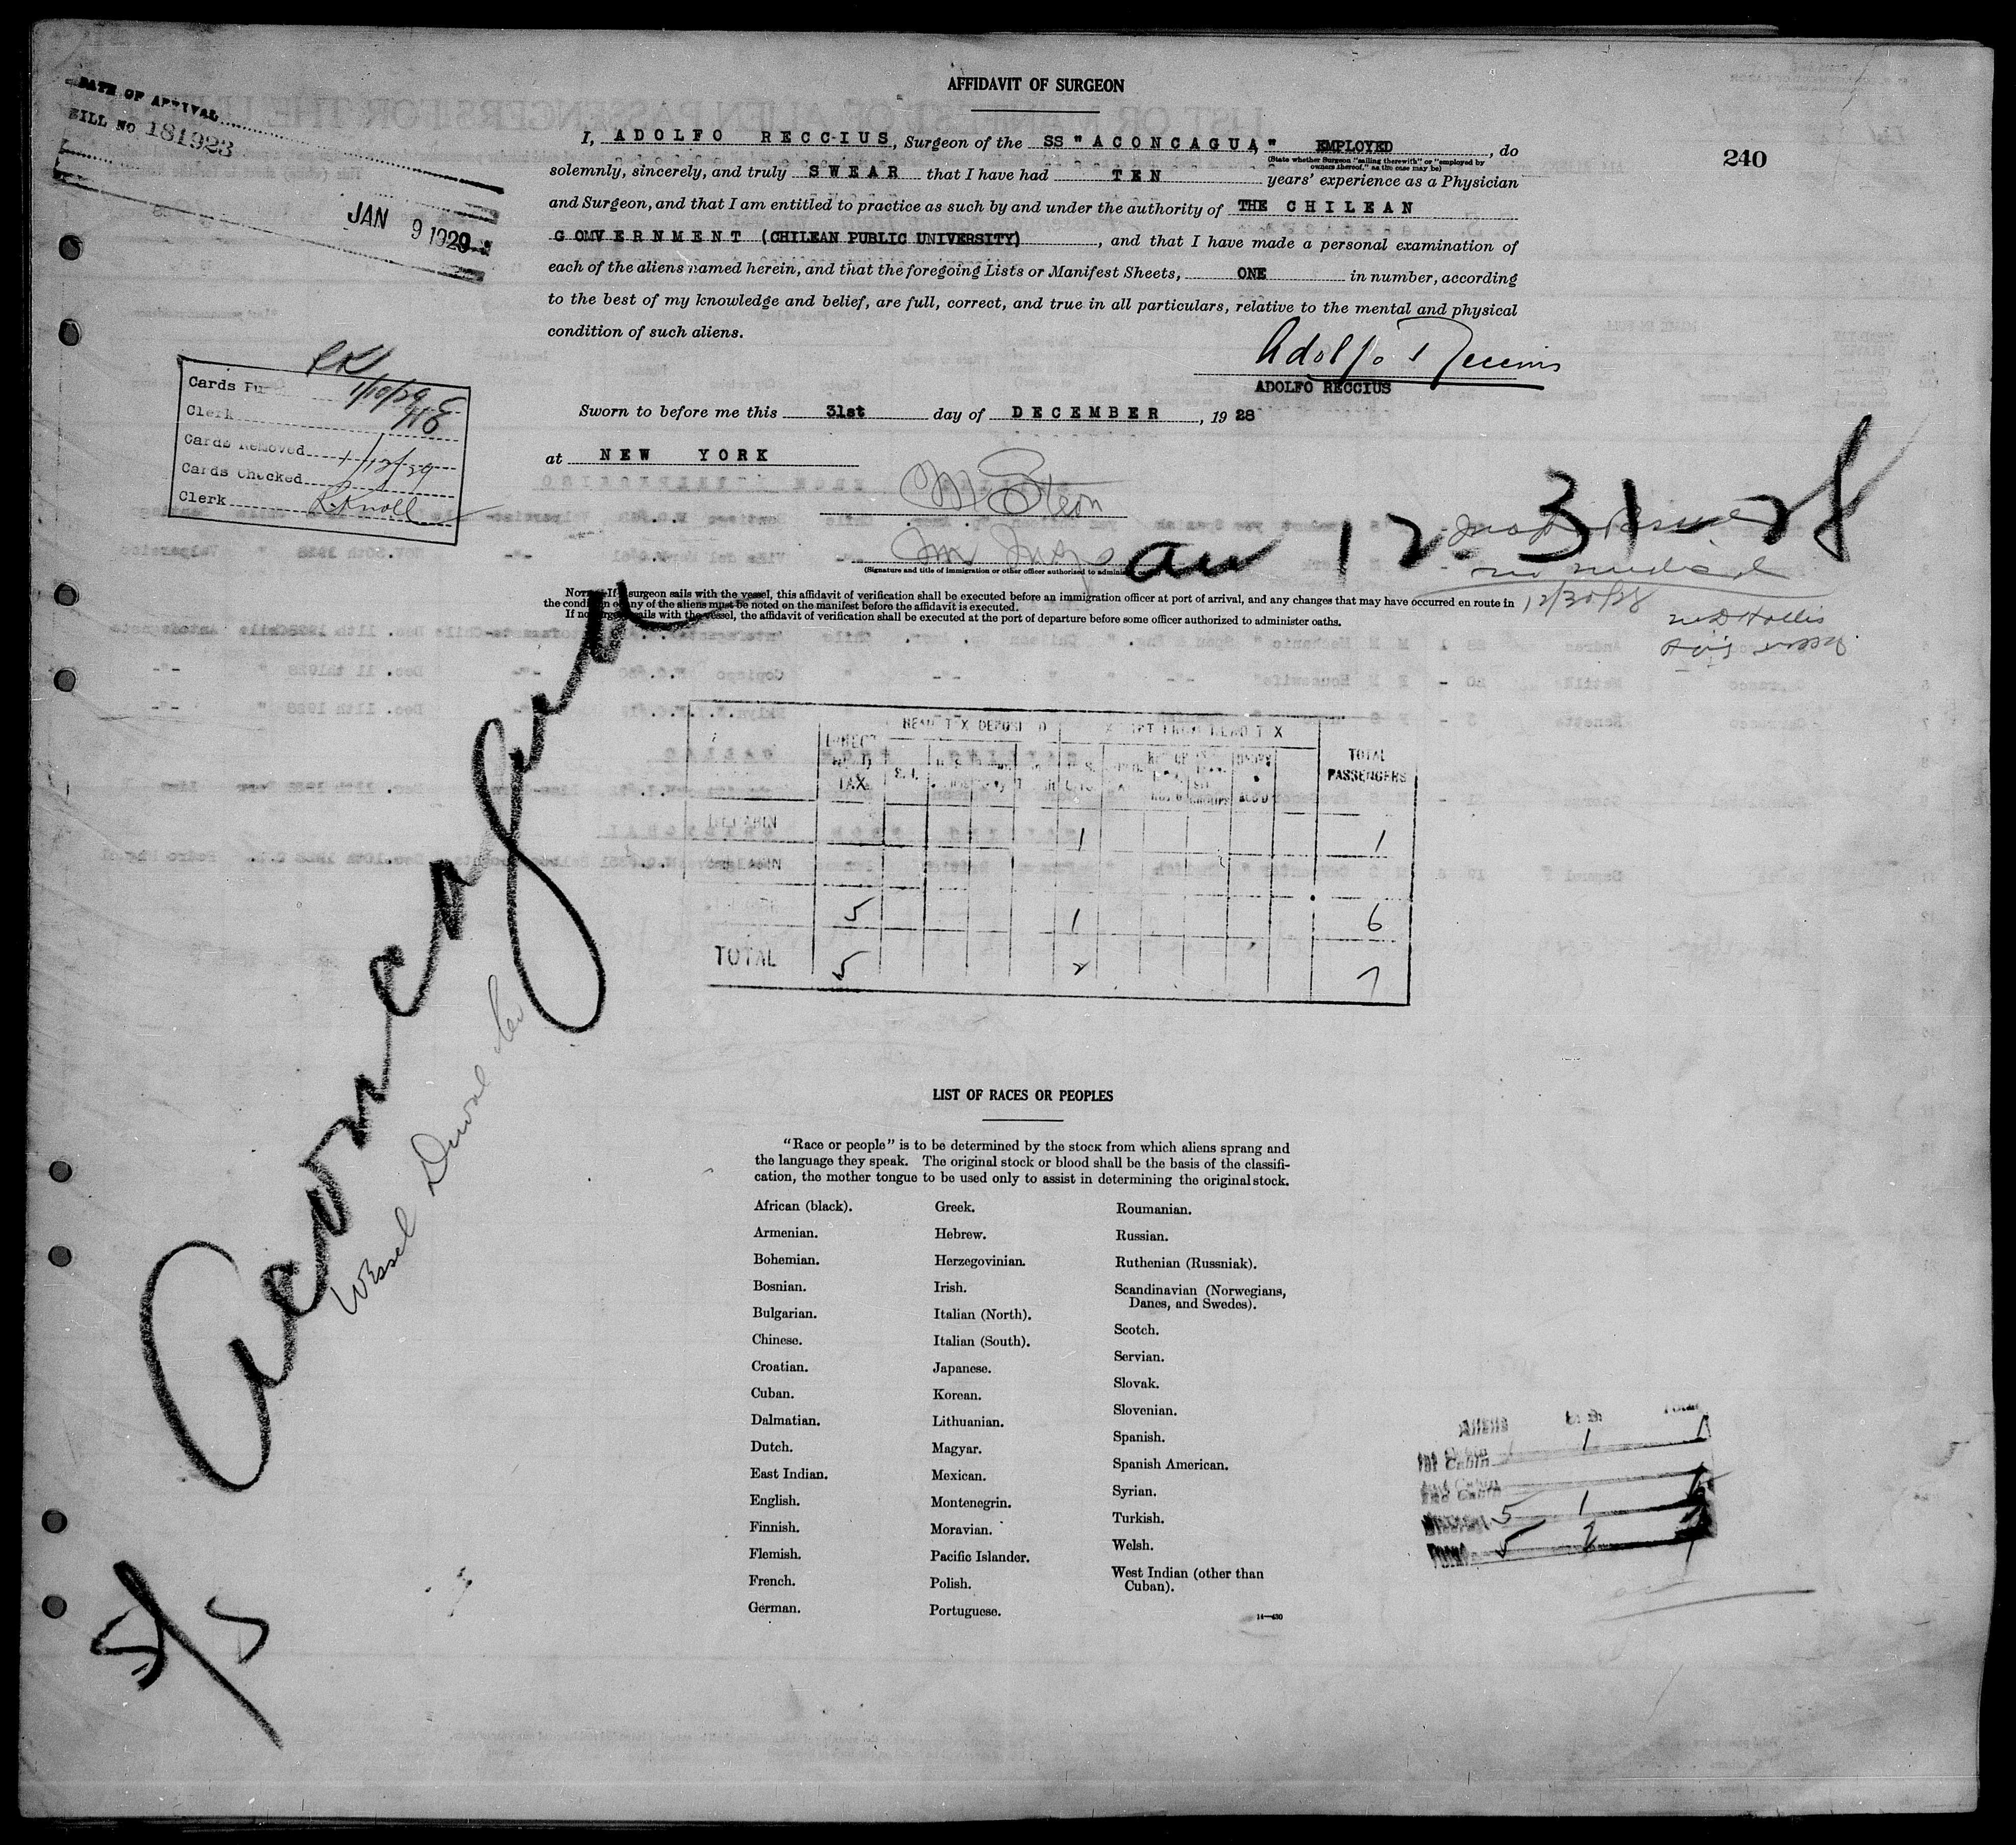 AFFIDAVIT OF SURGEON
DATE OF ARRIVAL
BILL NO 181923
JAN 9 1929
240
I, ADOLFO RECC-IUS, Surgeon of the SS "ACONCAGUA," EMPLOYED, do
(State whether Surgeon "sailing therewith" or "employed by
owners thereof," as the case may be)
solemnly, sincerely, and truly SWEAR that I have had TEN years' experience as a Physician
and Surgeon, and that I am entitled to practice as such by and under the authority of THE CHILEAN
GOMVERNMENT (CHILEAN PUBLIC UNIVERSITY), and that I have made a personal examination of
each of the aliens named herein, and that the foregoing Lists or Manifest Sheets, ONE in number, according
to the best of my knowledge and belief, are full, correct, and true in all particulars, relative to the mental and physical
condition of such aliens.
Adolfo Reccius
ADOLFO RECCIUS
Cards
1/10/29
Clerk
Cards Removed
1/12/29
Cards Checked
Clerk
Sworn to before me this 31st day of DECEMBER, 19 28
at NEW YORK
arr 12-31-28
(Signature and title of immigration or other officer authorized to administer oaths)
NOTE.—If a surgeon sails with the vessel, this affidavit of verification shall be executed before an immigration officer at port of arrival, and any changes that may have occurred en route in
the condition of any of the aliens must be noted on the manifest before the affidavit is executed.
If no surgeon sails with the vessel, the affidavit of verification shall be executed at the port of departure before some officer authorized to administer oaths.
12/30/28
Hollis
HEAD TAX DEPOSITED
EXEMPT FROM HEAD TAX
DIRECT
TAX
TOTAL
PASSENGERS
CABIN 1 1
CABIN
5 1 6
TOTAL 5 2 7
Aconcagua
Wessel Duval Co
LIST OF RACES OR PEOPLES
"Race or people" is to be determined by the stock from which aliens sprang and
the language they speak. The original stock or blood shall be the basis of the classifi-
cation, the mother tongue to be used only to assist in determining the original stock.
African (black).
Armenian.
Bohemian.
Bosnian.
Bulgarian.
Chinese.
Croatian.
Cuban.
Dalmatian.
Dutch.
East Indian.
English.
Finnish.
Flemish.
French.
German.
Greek.
Hebrew.
Herzegovinian.
Irish.
Italian (North).
Italian (South).
Japanese.
Korean.
Lithuanian.
Magyar.
Mexican.
Montenegrin.
Moravian.
Pacific Islander.
Polish.
Portuguese.
Roumanian.
Russian.
Ruthenian (Russniak).
Scandinavian (Norwegians,
Danes, and Swedes).
Scotch.
Servian.
Slovak.
Slovenian.
Spanish.
Spanish American.
Syrian.
Turkish.
Welsh.
West Indian (other than
Cuban).
14—430
Aliens
1st Cabin 1 1
2nd Cabin
5 1
Total 5 2